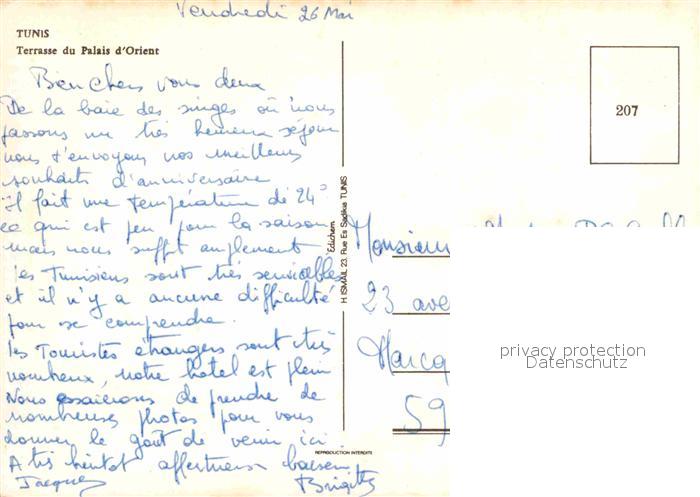 Vendredi 26 Mai
TUNIS
Terrasse du Palais d'Orient
Bien chers vous deux
De la baie des singes où nous
passons un très heureux séjour
nous t'envoyons nos meilleurs
souhaits d'anniversaire
Il fait une température de 24°
ce qui est peu pour la saison
mais nous suffit amplement
Les Tunisiens sont très serviables
et il n'y a aucune difficulté
pour se comprendre.
Les Touristes étrangers sont très
nombreux, notre hôtel est plein
Nous essaierons de prendre de
nombreuses photos pour vous
donner le goût de venir ici.
A très bientôt affectueux baisers
Jacques Brigitte
Edichem
H. ISMAIL 23, Rue Es Sadikia TUNIS
REPRODUCTION INTERDITE
207
Monsieur
23 ave
Marcq
59
privacy protection
Datenschutz